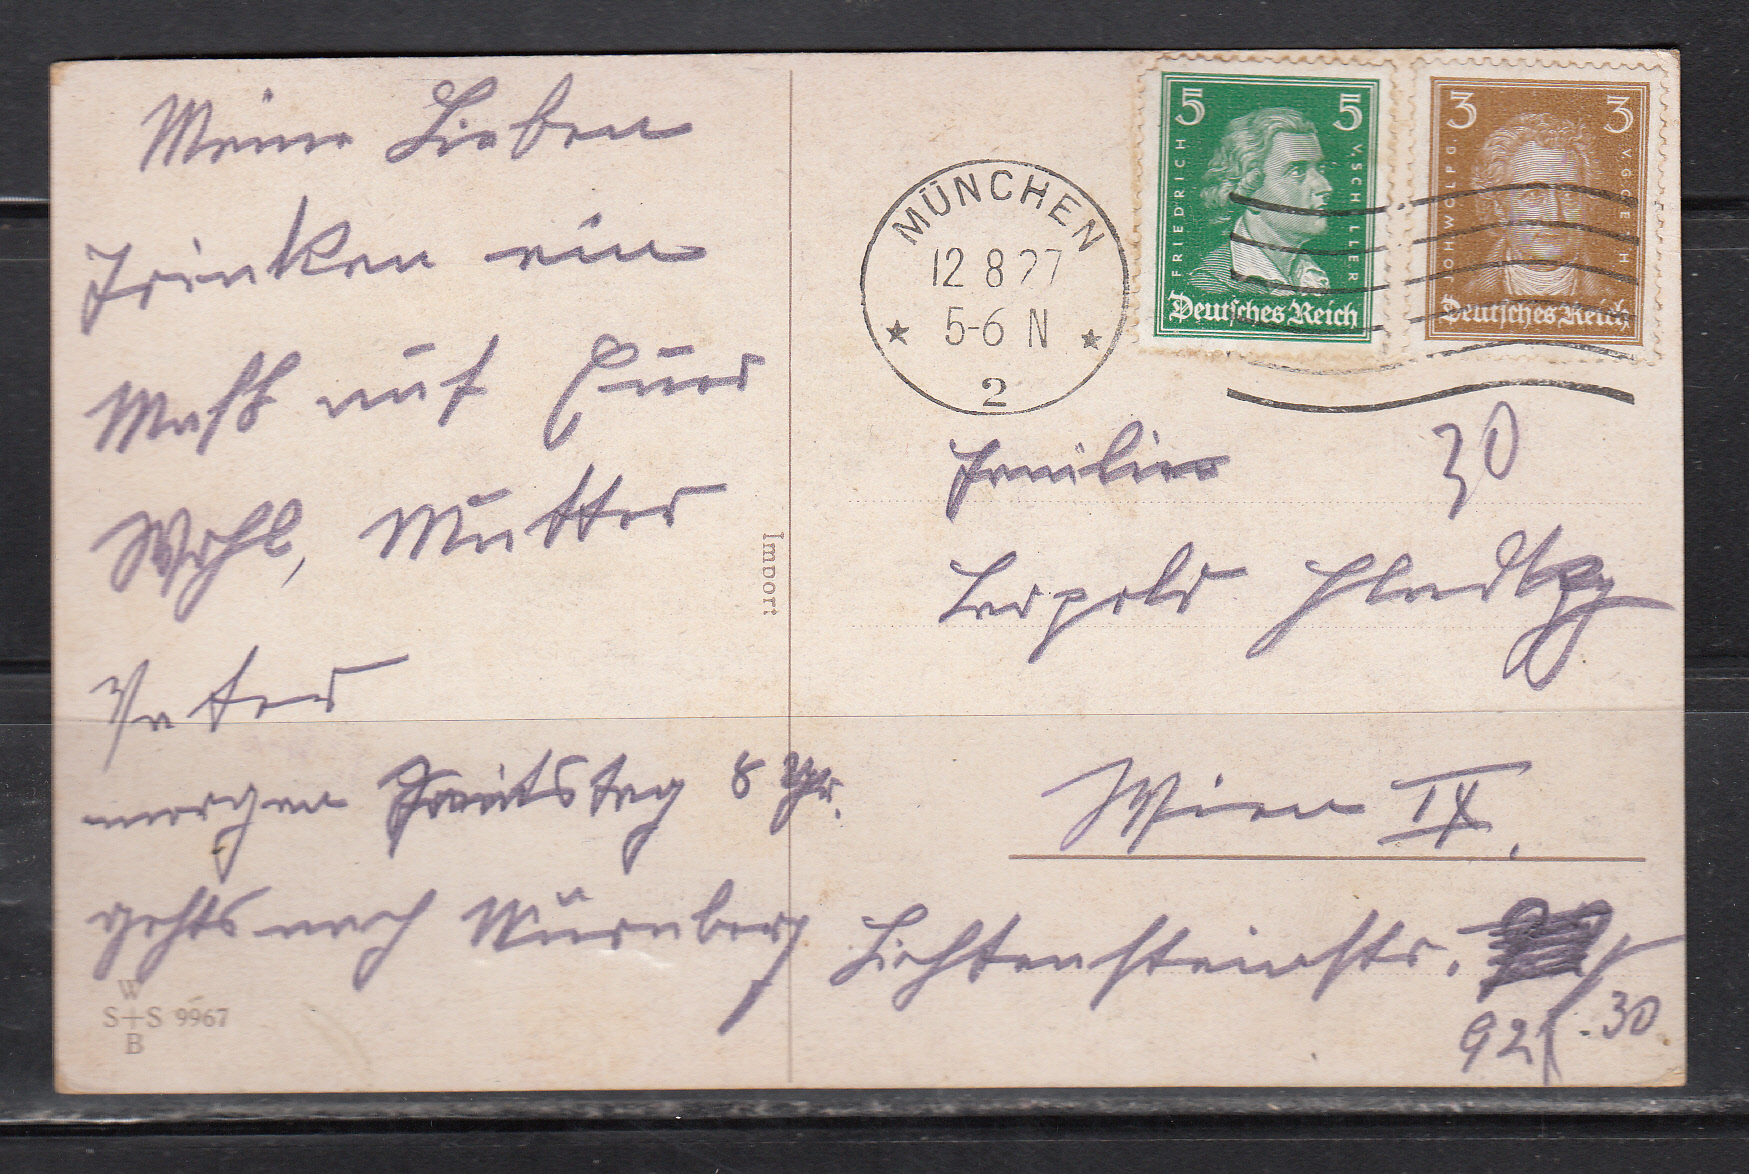 Meine Lieben
Trinken ein
Maß auf Euer
Wohl, Mutter
Vater
morgen Samstag 8 Uhr.
gehts nach Nürnberg
W
S+S 9967
B
Import
MÜNCHEN
12 8 27
5-6 N
2
5 5
FRIEDRICH V. SCHILLER
Deutsches Reich
3 3
JOH. WOLFG. V. GOETHE
Deutsches Reich
Familie 30
Leopold
Wien IX.
Lichtensteinstr.
92 30